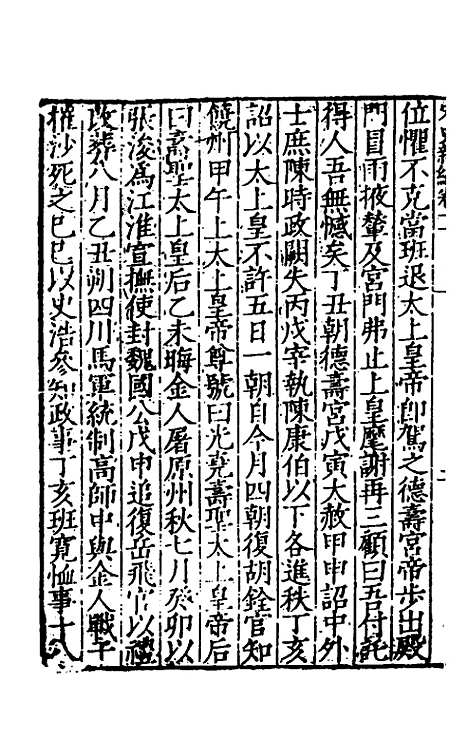 位懼不克當班退太上皇帝即駕之德壽宮帝步出殿
門冒雨掖輦及宮門弗止上皇麾謝再三顧曰吾付託
得人吾無憾矣丁丑朝德壽宮戊寅大赦甲申詔中外
士庶陳時政闕失丙戌宰執陳康伯以下各進秩丁亥
詔以太上皇不許五日一朝自今月四朝復胡銓官知
饒州甲午上太上皇帝尊號曰光堯壽聖太上皇帝后
曰壽聖太上皇后乙未晦金人屠原州秋七月癸卯以
張浚爲江淮宣撫使封魏國公戊申追復岳飛官以禮
改葬八月乙丑朔四川馬軍統制高師中與金人戰于
摧沙死之己巳以史浩參知政事丁亥班寬恤事十八